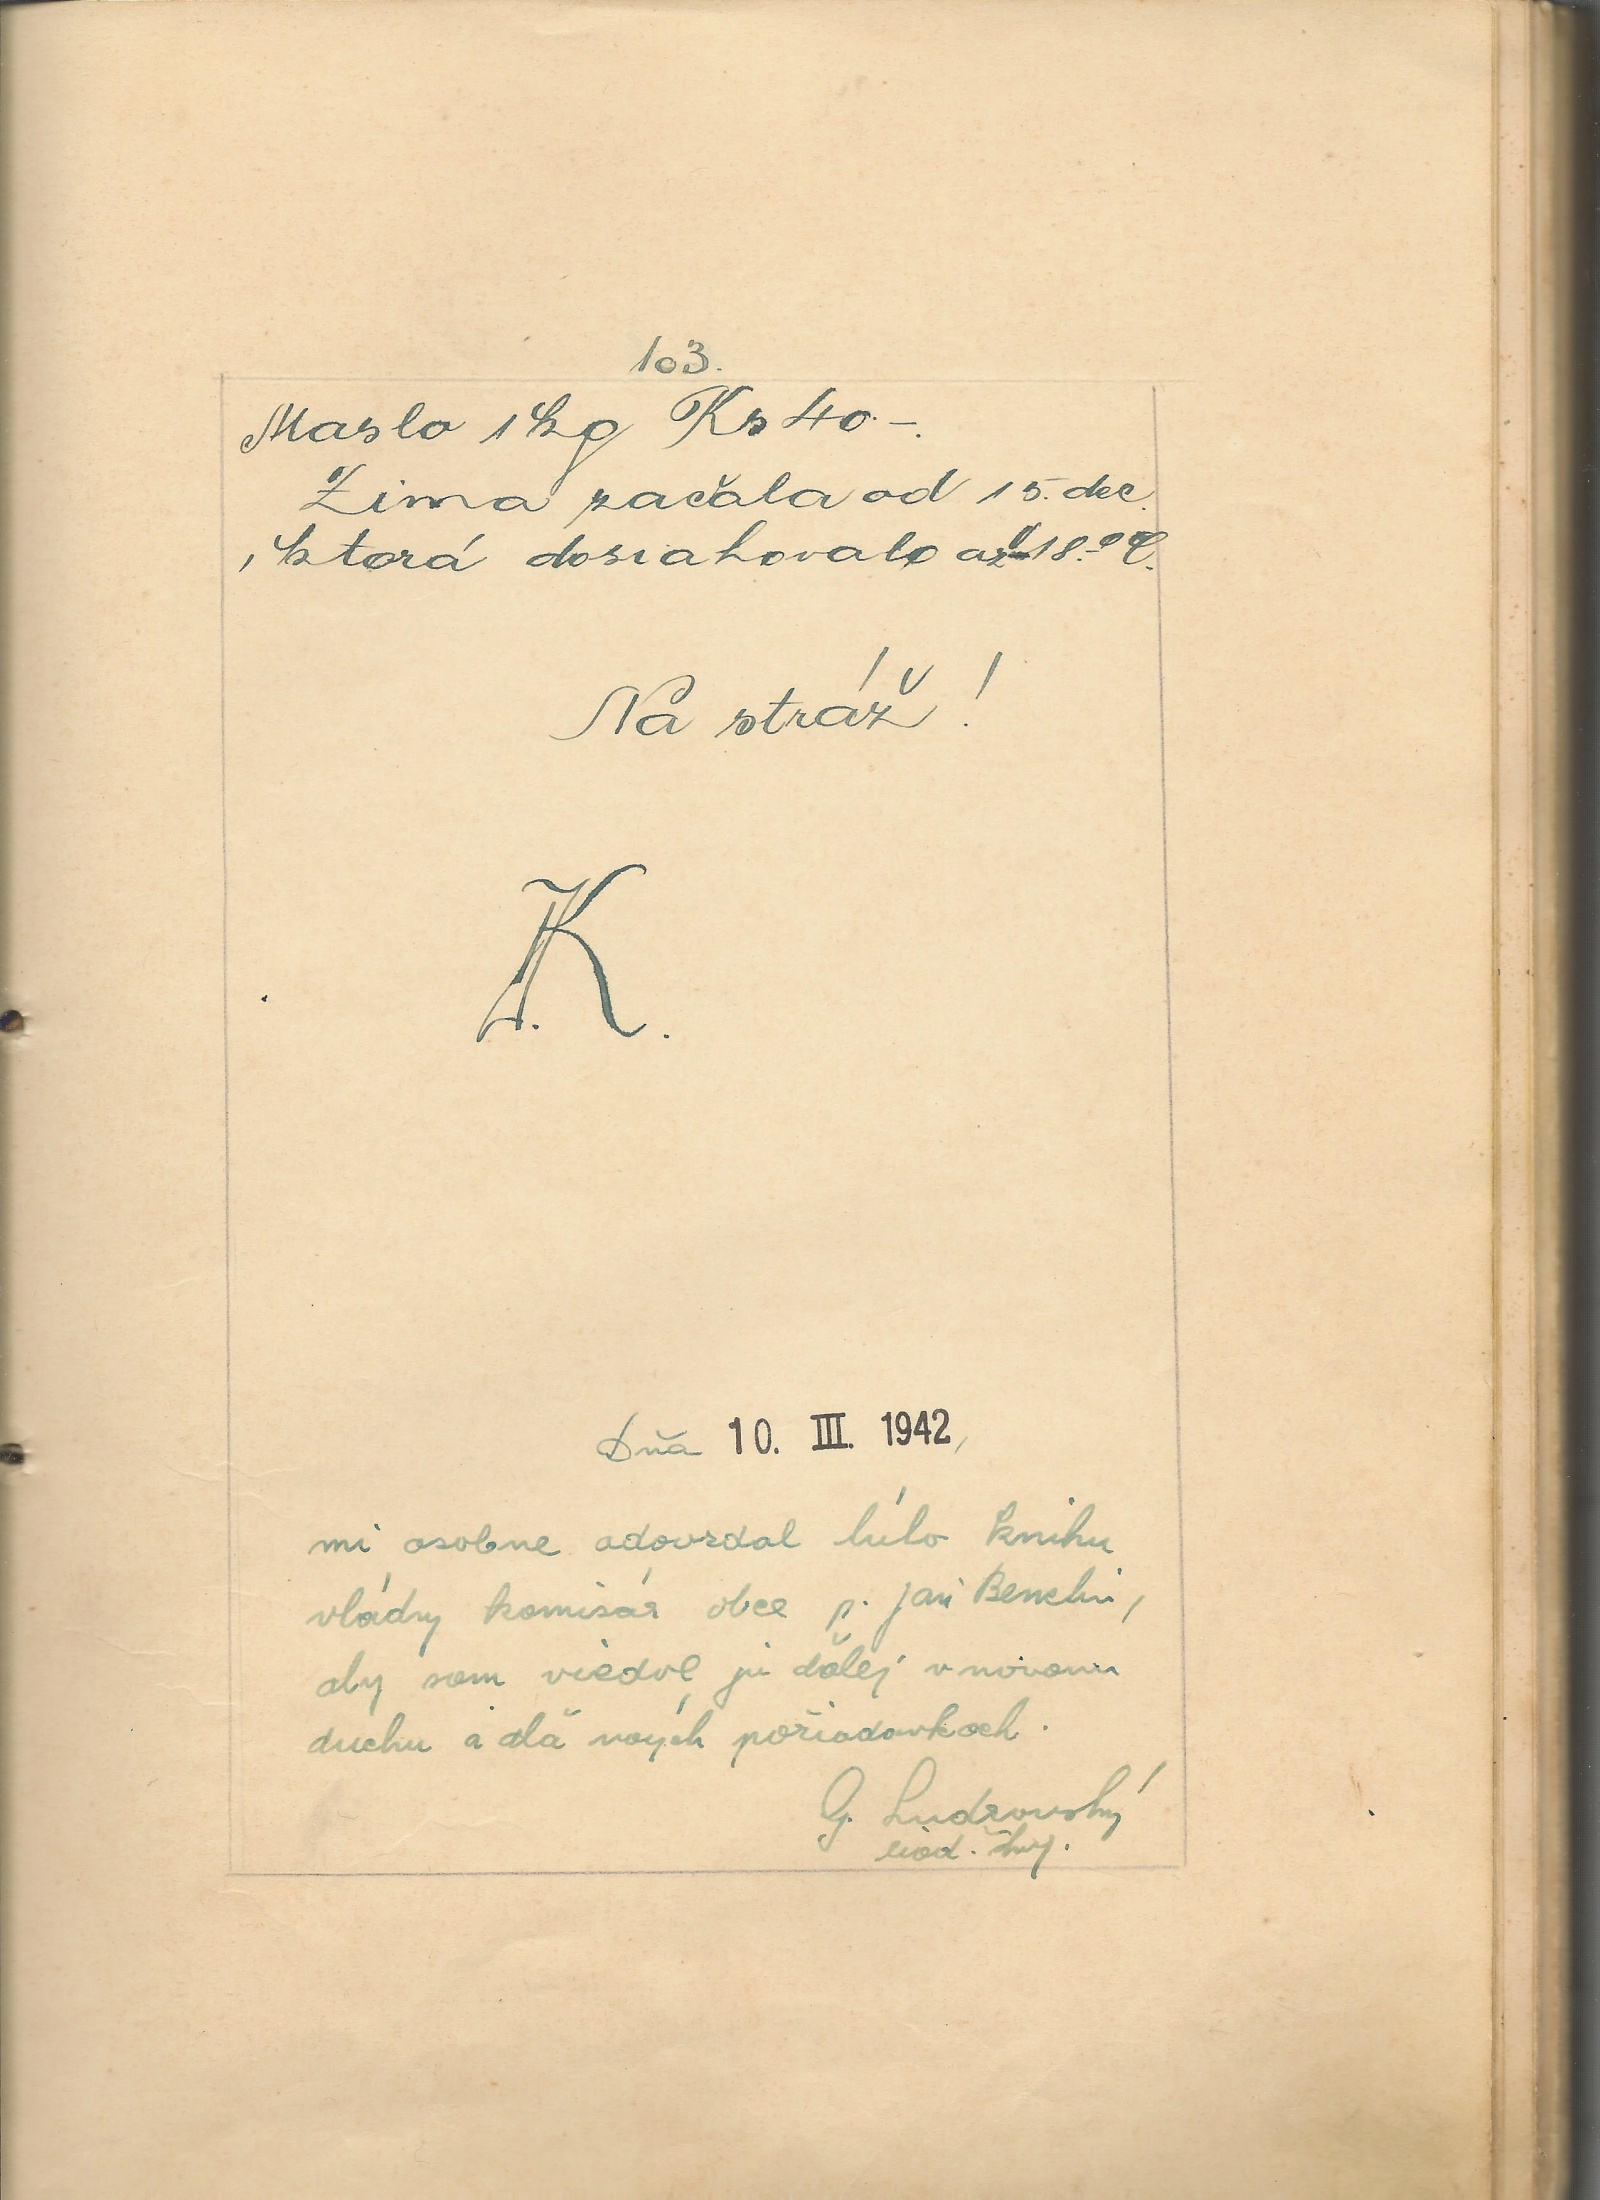 103.
Maslo 1 kg Ks 40.-.
Zima začala od 15. dec.
, ktorá dosiahovalo až -18.-° C.
Na stráž !
K.
Dňa 10. III. 1942,
mi osobne odovzdal túto knihu
vládny komisár obce p. Ján
aby som viedol ju ďalej v novom
duchu a dľa nových požiadavkach.
G. Ludrovský